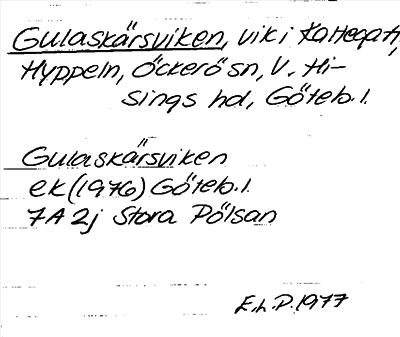 Gulaskärsviken, vik i Kattegatt,
Hyppeln, Öckerö sn, V. Hi-
sings hd, Göteb. l.
Gulaskärsviken
ek (1976) Göteb. l.
7A 2j Stora Pölsan
E.L.P. 1977